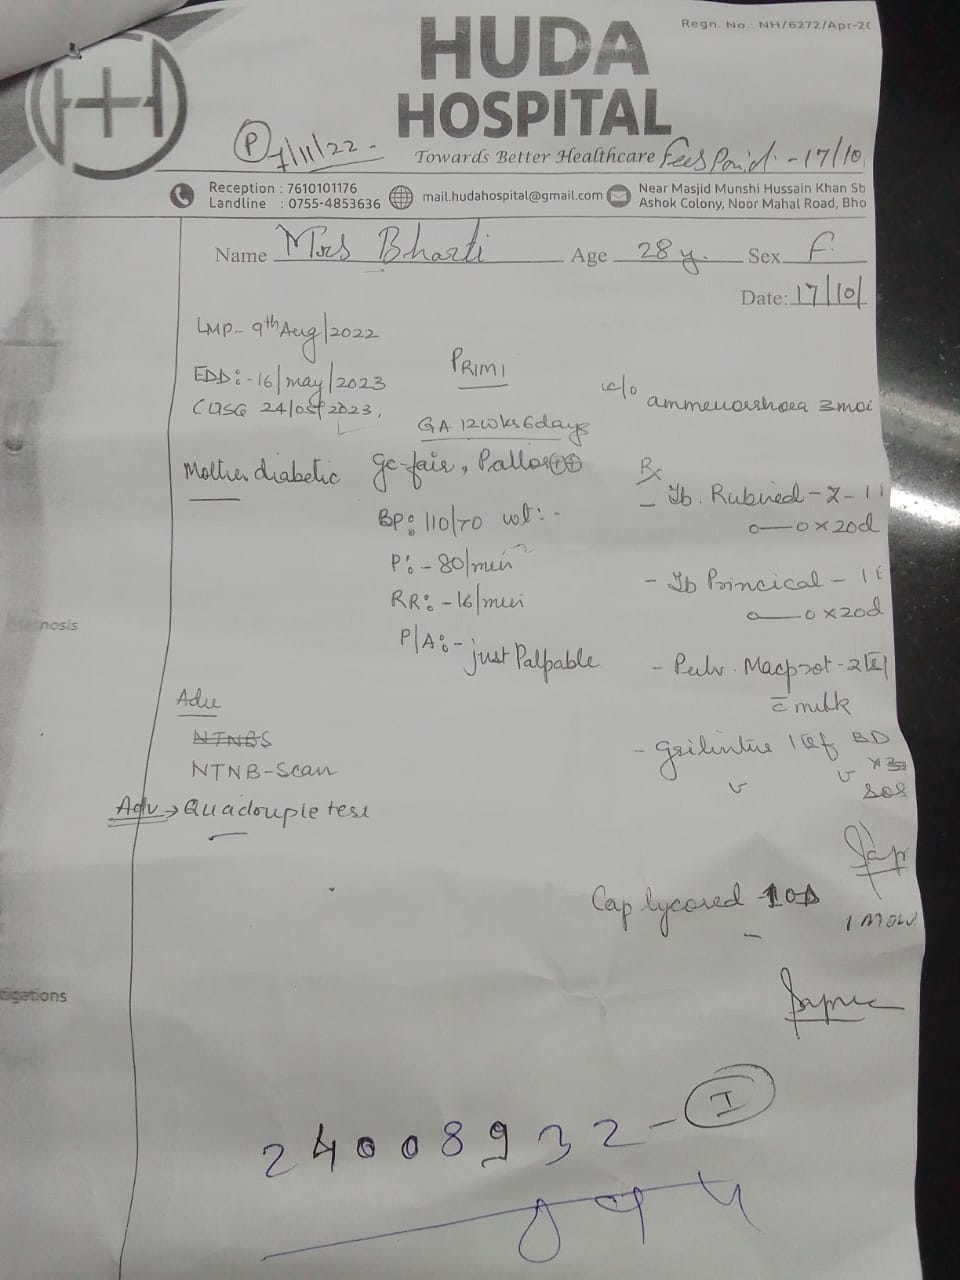 Regn. No.: NH/6272/Apr-20
HUDA
HOSPITAL
Towards Better Healthcare
P 7/11/22.
Fees Paid. - 17/10
Reception : 7610101176
Landline : 0755-4853636
mail.hudahospital@gmail.com
Near Masjid Munshi Hussain Khan Sb
Ashok Colony, Noor Mahal Road, Bho
Name Mrs Bharti Age 28 y. Sex F
Date: 17/10/
LMP- 9th Aug/2022
PRIMI
EDD:- 16/may/2023
CUSG 24/05/2023,
GA 12wks6days
c/o ammenorrhoea 3mo
Mother diabetic
gc-fair, Pallor++
BP: 110/70 wt:-
P:- 80/min
RR:- 16/min
P/A:- just Palpable
Rx
- Tb. Rubired-Z-1
o—o x 20d
- Tb Princical - 1
o—o x 20d
- Pulv. Macprot-2
c milk
- Grilinctus 1 BD
SOS
nosis
Adv
NTNBS
NTNB-Scan
Adv → Quadouple test
Cap lycored -1OD
1 mon
igations
24008932 - I